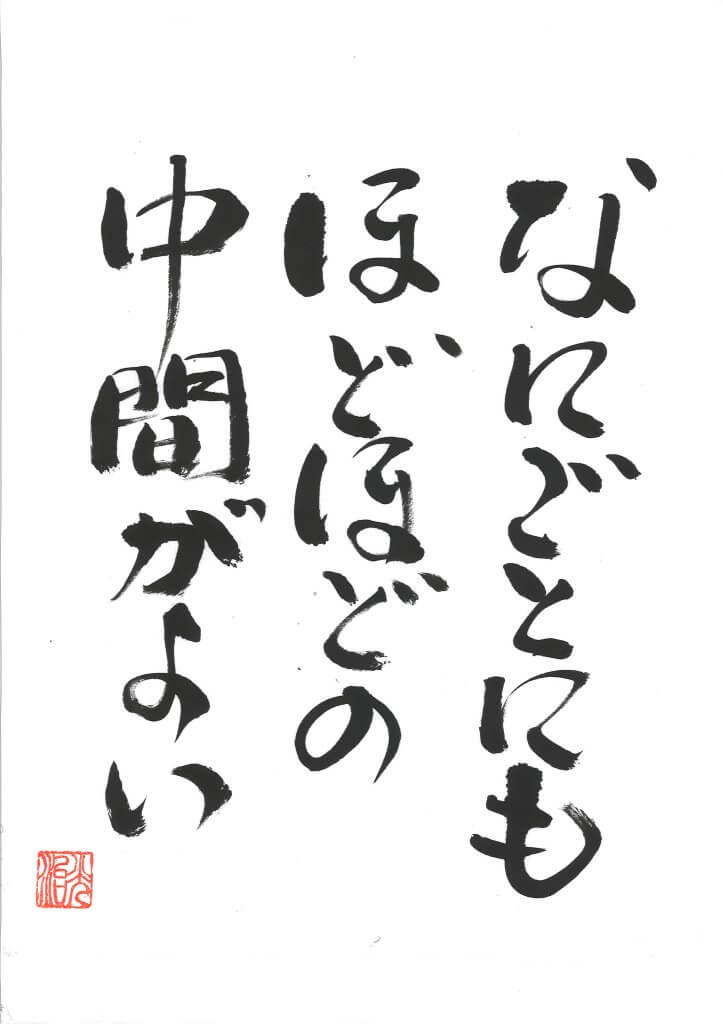 なにごとにも
ほどほどの
中間がよい